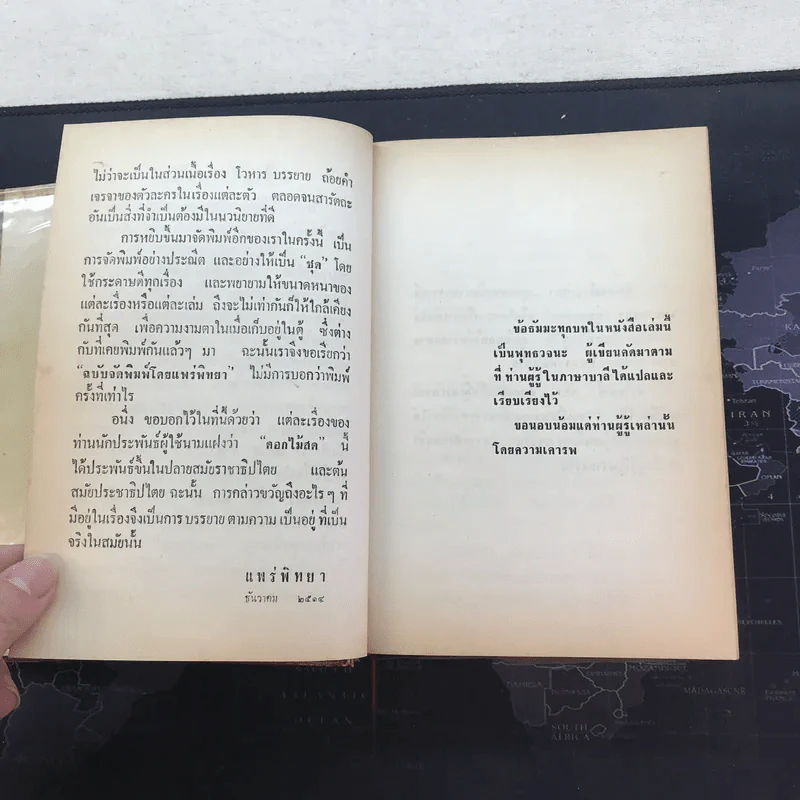 ไม่ว่าจะเป็นในส่วนเนื้อเรื่อง โวหาร บรรยาย ถ้อยคำ
เจรจาของตัวละครในเรื่องแต่ละตัว ตลอดจนสารัตถะ
อันเป็นสิ่งที่จำเป็นต้องมีในนวนิยายที่ดี
การหยิบขึ้นมาจัดพิมพ์อีกของเราในครั้งนี้ เป็น
การจัดพิมพ์อย่างประณีต และอย่างให้เป็น "ชุด" โดย
ใช้กระดาษดีทุกเรื่อง และพยายามให้ขนาดหนาของ
แต่ละเรื่องหรือแต่ละเล่ม ถึงจะไม่เท่ากันก็ให้ใกล้เคียง
กันที่สุด เพื่อความงามตาในเมื่อเก็บอยู่ในตู้ ซึ่งต่าง
กับที่เคยพิมพ์กันแล้วๆ มา ฉะนั้นเราจึงขอเรียกว่า
"ฉบับจัดพิมพ์โดยแพร่พิทยา" ไม่มีการบอกว่าพิมพ์
ครั้งที่เท่าไร
อนึ่ง ขอบอกไว้ในที่นี้ด้วยว่า แต่ละเรื่องของ
ท่านนักประพันธ์ผู้ใช้นามแฝงว่า "ดอกไม้สด" นี้
ได้ประพันธ์ขึ้นในปลายสมัยราชาธิปไตย และต้น
สมัยประชาธิปไตย ฉะนั้น การกล่าวขวัญถึงอะไรๆ ที่
มีอยู่ในเรื่องจึงเป็นการ บรรยาย ตามความ เป็นอยู่ ที่เป็น
จริงในสมัยนั้น
แพร่พิทยา
ธันวาคม ๒๕๑๔
ข้อธัมมะทุกบทในหนังสือเล่มนี้
เป็นพุทธวจนะ ผู้เขียนคัดมาตาม
ที่ ท่านผู้รู้ในภาษาบาลีได้แปลและ
เรียบเรียงไว้
ขอนอบน้อมแด่ท่านผู้รู้เหล่านั้น
โดยความเคารพ
IRAN
OMAN
SEYCHELLES
MADAGASCAR
NAMIBIA
SOUTH
AFRICA
OCEAN